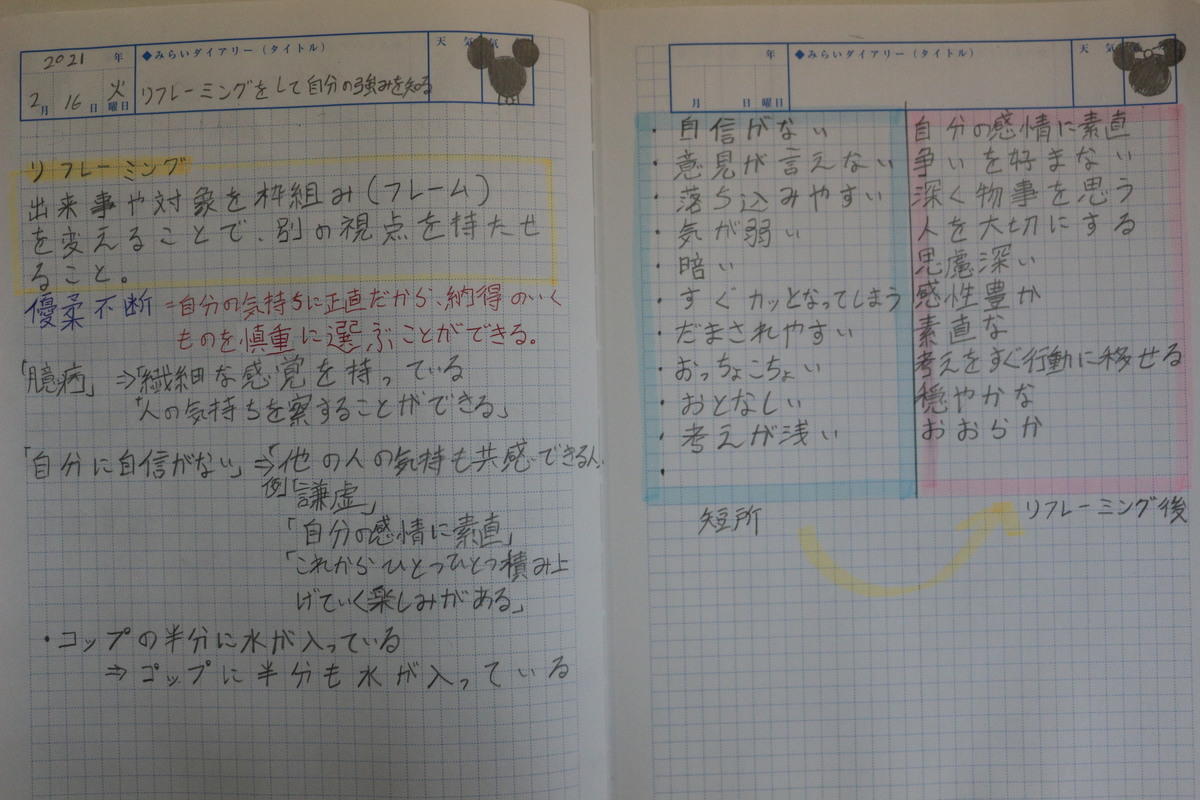 2021 年 ◆みらいダイアリー（タイトル） 天気
2月 16日 火曜日 リフレーミングをして自分の強みを知る
リフレーミング
出来事や対象を枠組み(フレーム)
を変えることで、別の視点を持たせ
ること。
優柔不断=自分の気持ちに正直だから、納得のいく
ものを慎重に選ぶことができる。
「臆病」⇒「繊細な感覚を持っている
「人の気持ちを察することができる」
「自分に自信がない」⇒「他の人の気持も共感できる人
例「謙虚」
「自分の感情に素直」
「これからひとつひとつ積み上
げていく楽しみがある」
・コップの半分に水が入っている
⇒コップに半分も水が入っている
年 ◆みらいダイアリー（タイトル） 天気
月 日 曜日
・自信がない 自分の感情に素直
・意見が言えない 争いを好まない
・落ち込みやすい 深く物事を思う
・気が弱い 人を大切にする
・暗い 思慮深い
・すぐカッとなってしまう 感性豊か
・だまされやすい 素直な
・おっちょこちょい 考えをすぐ行動に移せる
・おとなしい 穏やかな
・考えが浅い おおらか
・
短所 リフレーミング後